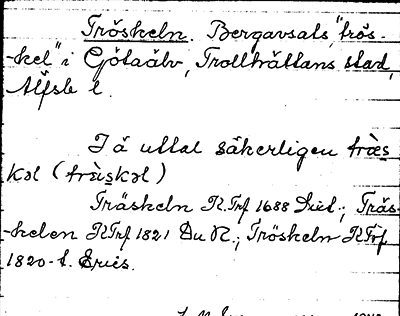 Tröskeln. Bergavsats, "trös-
-kel" i Götaälv, Trollhättans stad,
Älfsb l.
I ä uttal säkerligen träs
kəl (träskəl)
Träskeln R.Trf 1688 Diet.; Träs-
-kelen RTrf 1821 Du R.; Tröskeln RTrf
1820-t. Erics.